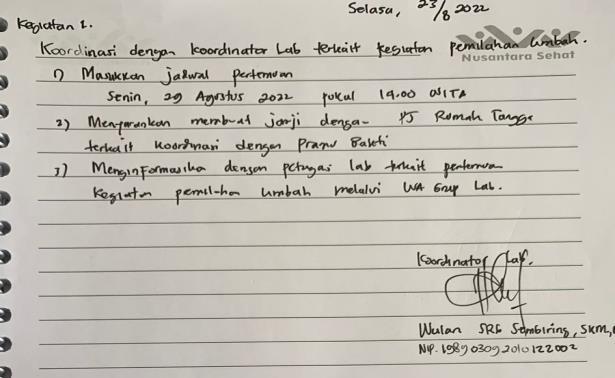 Selasa, 23/8 2022
Kegiatan 1.
Koordinasi dengan koordinator Lab terkait kegiatan pemilahan limbah.
Nusantara Sehat
1) Masukkan jadwal pertemuan
Senin, 29 Agustus 2022 pukul 14.00 WITA
2) Menyarankan membuat janji dengan PJ Rumah Tangga
terkait koordinasi dengan Pramu Bakti
3) Menginformasikan dengan petugas lab terkait pertemuan
kegiatan pemilahan limbah melalui WA Grup Lab.
Koordinator Lab.
Wulan SRG Sembiring, SKM,
NIP. 19890309 2010122002